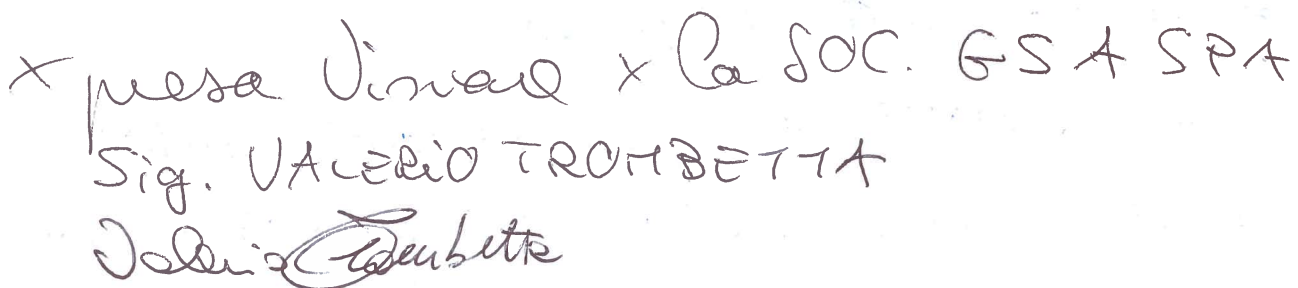 x presa visione x la SOC. GSA SPA
Sig. VALERIO TROMBETTA
Valerio Trombetta